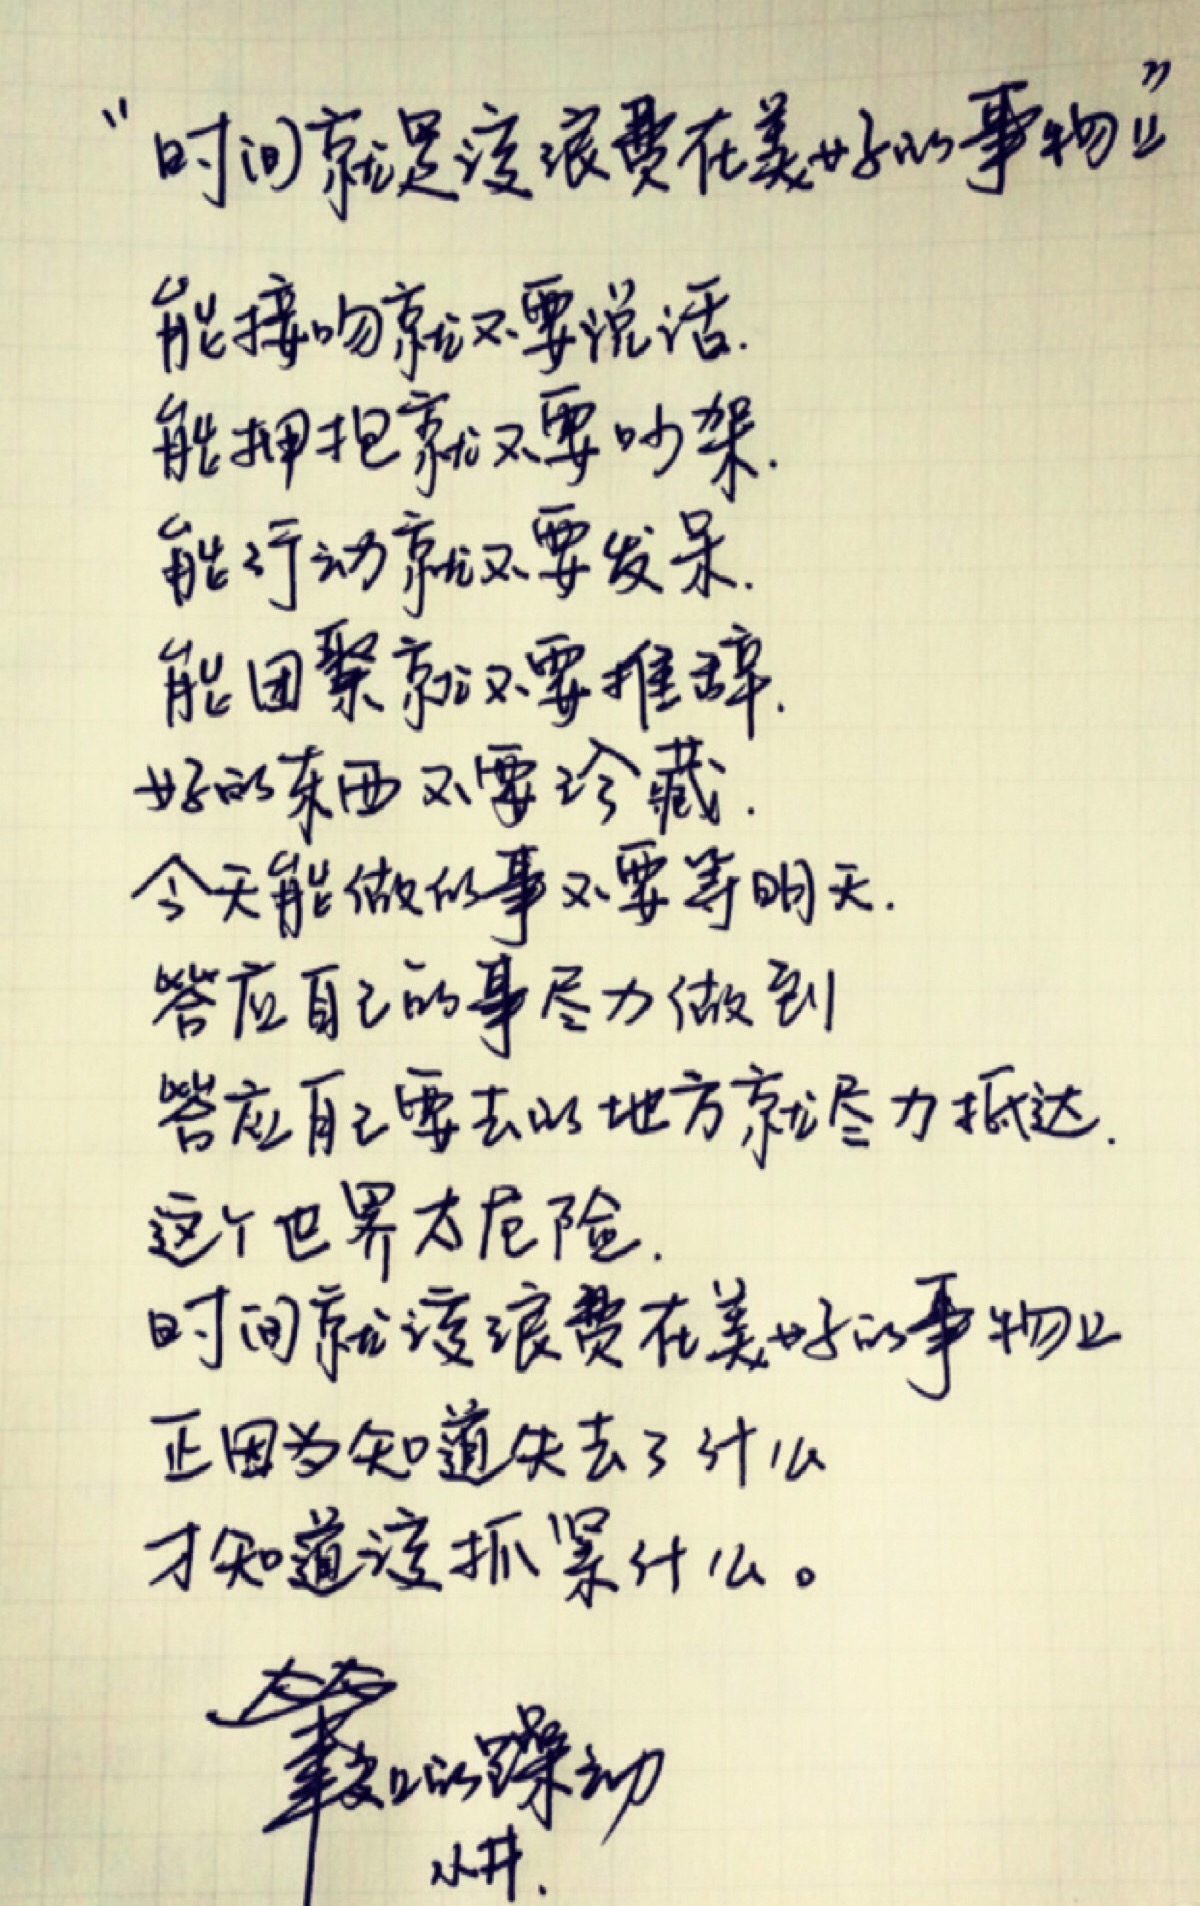 “时间就是该浪费在美好的事物上”
能接吻就不要说话.
能拥抱就不要吵架.
能行动就不要发呆.
能团聚就不要推辞.
好的东西不要珍藏.
今天能做的事不要等明天.
答应自己的事尽力做到
答应自己要去的地方就尽力抵达.
这个世界太危险.
时间就该浪费在美好的事物上
正因为知道失去了什么
才知道该抓紧什么。
笔尖的躁动
小井.